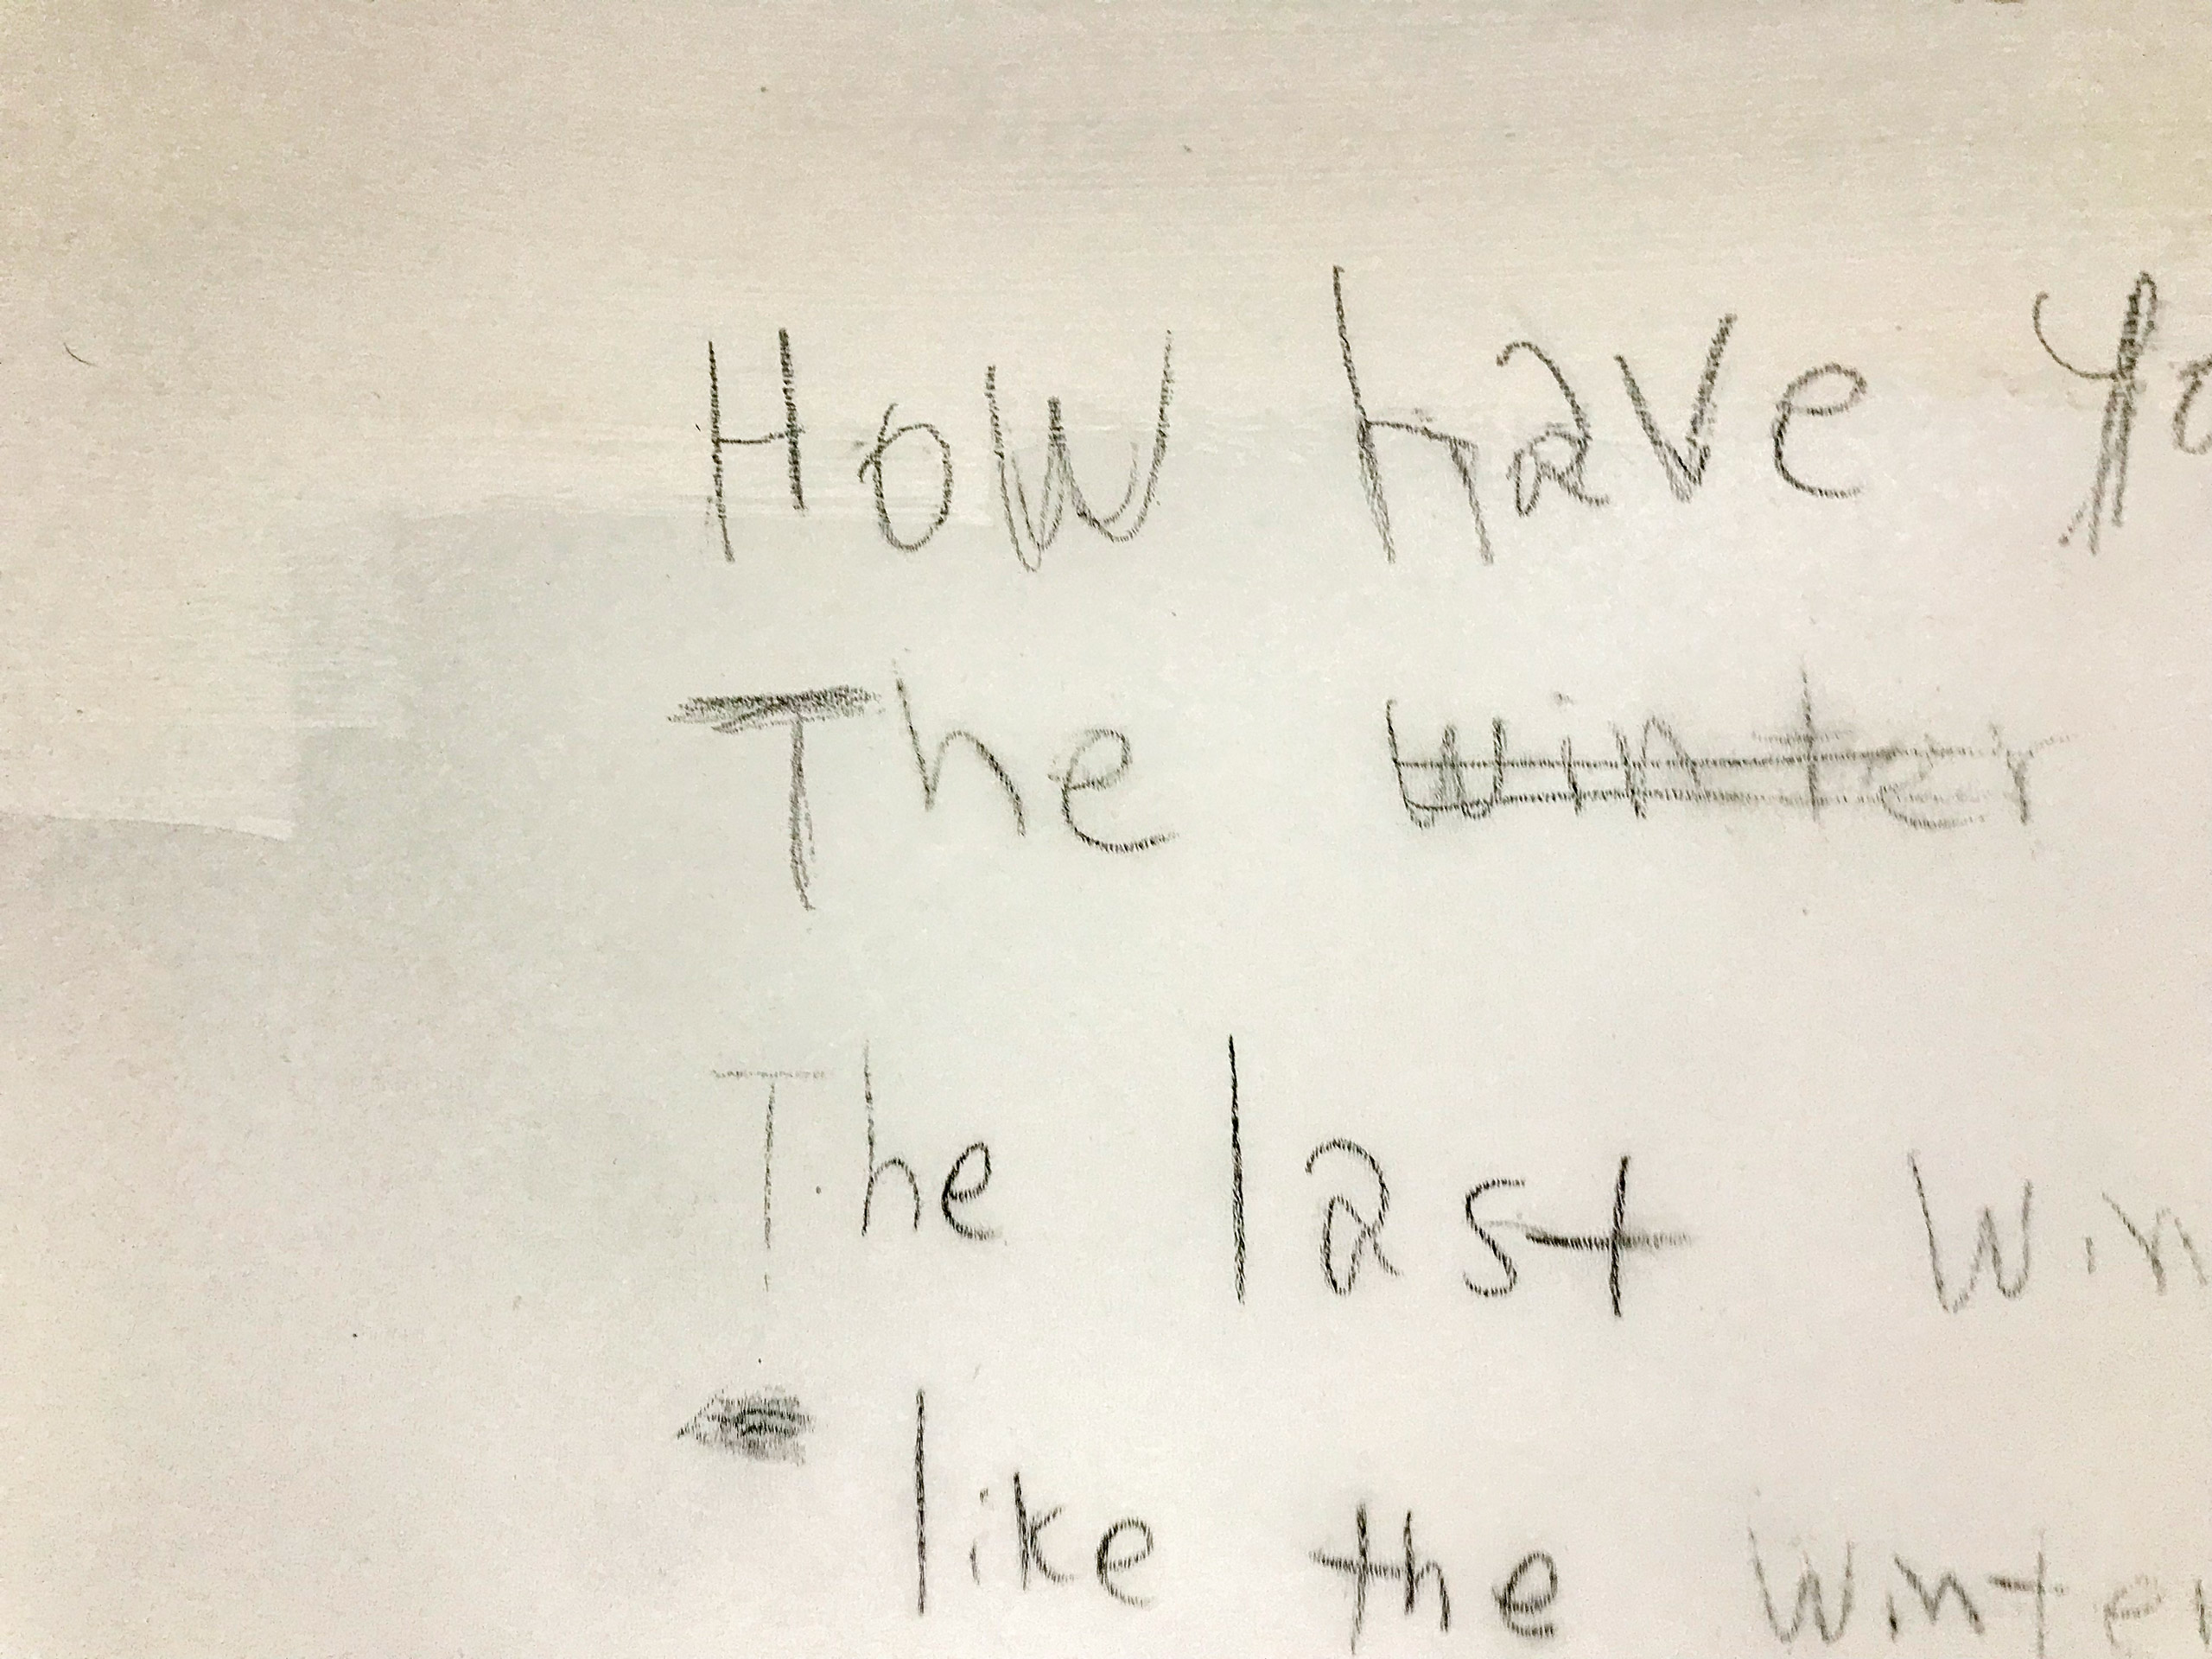 How have yo
The winter
The last win
like the winter